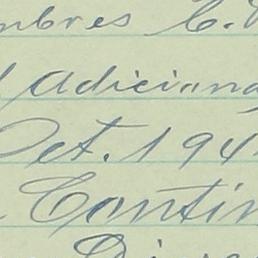 mbres C.
Adiciona
Oct. 194
Contin